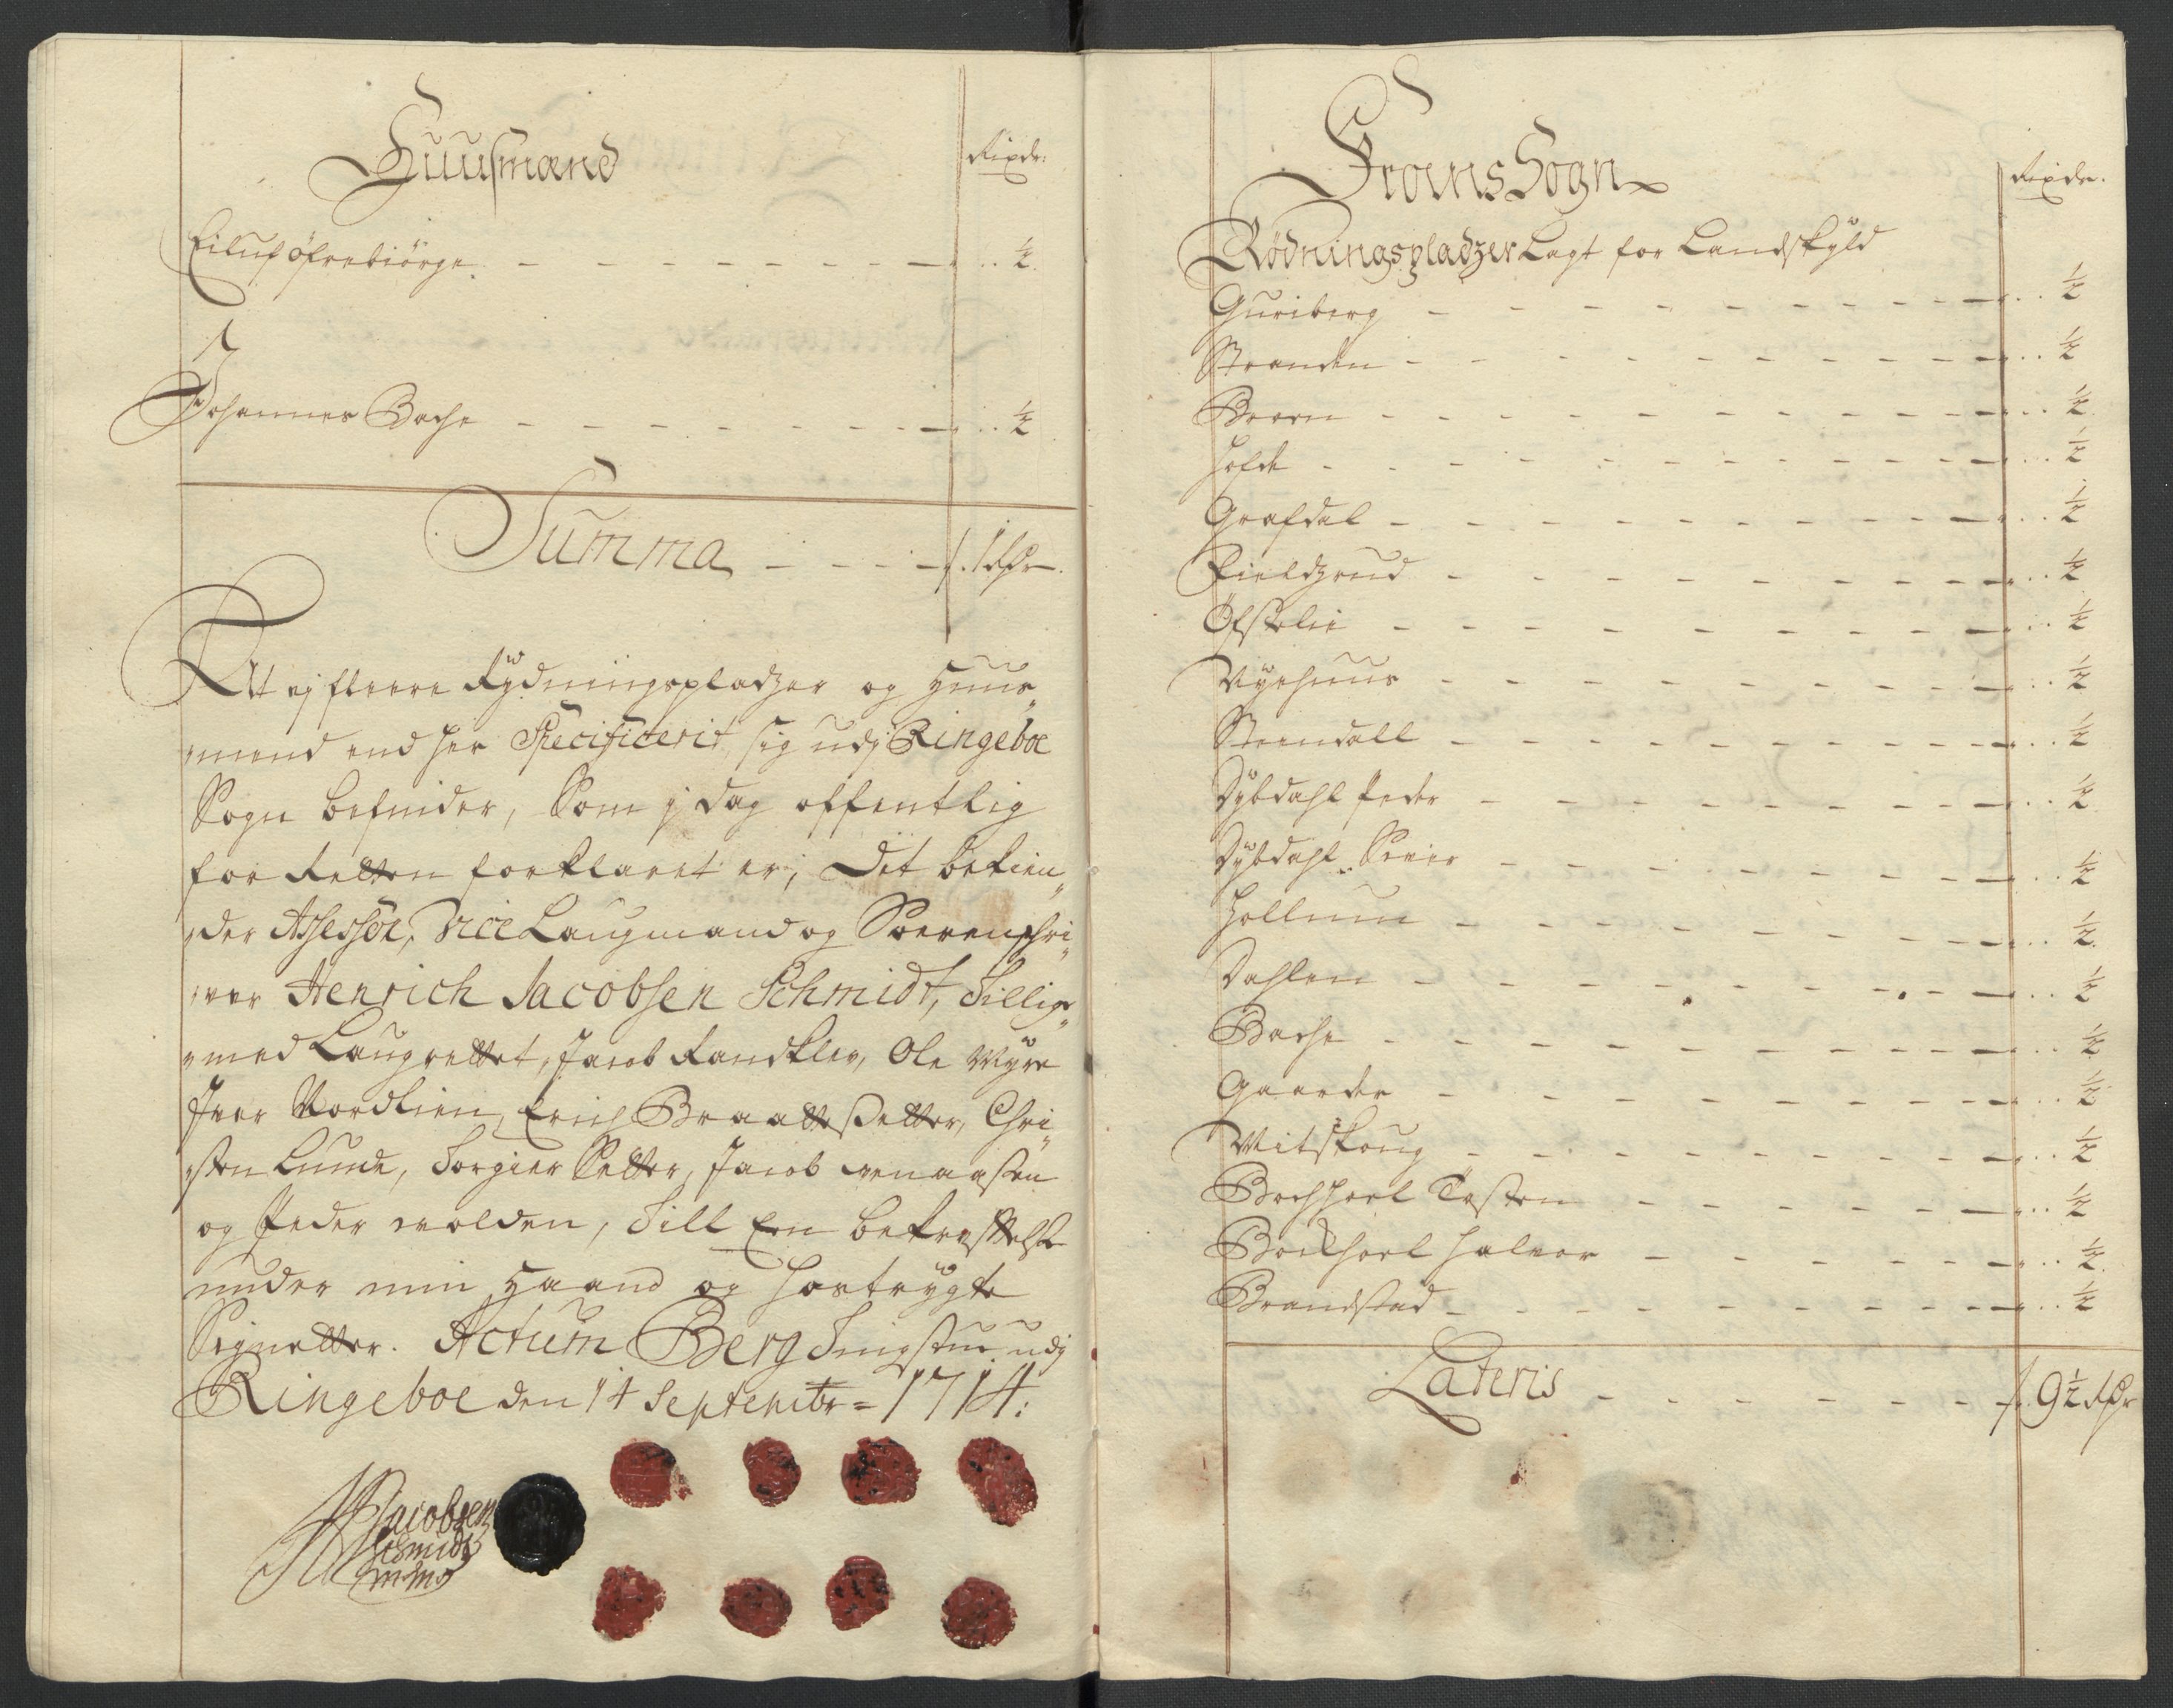 Huusmænd
Rixdr:
Eiluf öfrebiörge - - - - - - - - - - ½
Johannes Bache - - - - - - - - - ½
Summa - - - - 1 Rdr
At ej fleere Rÿdningspladzer og Huus„
„mænd end her Specificerit, sig udj Ringeboe
Sogn befinder, Som j dag offentlig
for Retten forklaret er, Det bekien„
„der Assessor, Vice Laugmand og Soerenschri„
„ver Henrich Jacobsen Schmidt, Tillige„
„med Laugrettet, Jacob Randklev, Ole Wÿre
Iver Nordlien, Erich Braattesetter, Chri„
„sten Lunde, Torgier Setter, Jacob
og Peder wolden, Till Een bekræfftelse
under min Haand og hostrÿgte
Signetter. Actum Berg Tingstue udj
Ringeboe den 14 Septembr = 1714:
HJacobsen
Schmidt
mpria
Froens Sogn
Rixdr.
Rödningspladzer Lagt for Landskÿld
Guriberg - - - - - - - - - ½
Stranden - - - - - - - - - ½
Braen - - - - - - - - - ½
Hofde - - - - - - - - - ½
Grafdal - - - - - - - - - ½
Fieldzrud - - - - - - - - - ½
Öfstelie - - - - - - - - - ½
Nÿehuus - - - - - - - - - ½
Steendall - - - - - - - - - ½
Dÿbdahl Peder - - - - - - - - ½
Dÿbdahl Siver - - - - - - - - ½
Hollum - - - - - - - - - ½
Dahlen - - - - - - - - - ½
Bache - - - - - - - - - ½
Gaarder - - - - - - - - - ½
Witskoug - - - - - - - - - ½
Bechhoel Tosten - - - - - - ½
Beckhoel Halvor - - - - - - ½
Brandstad - - - - - - - - - ½
Lateris - - - - - - 9½ Rdr